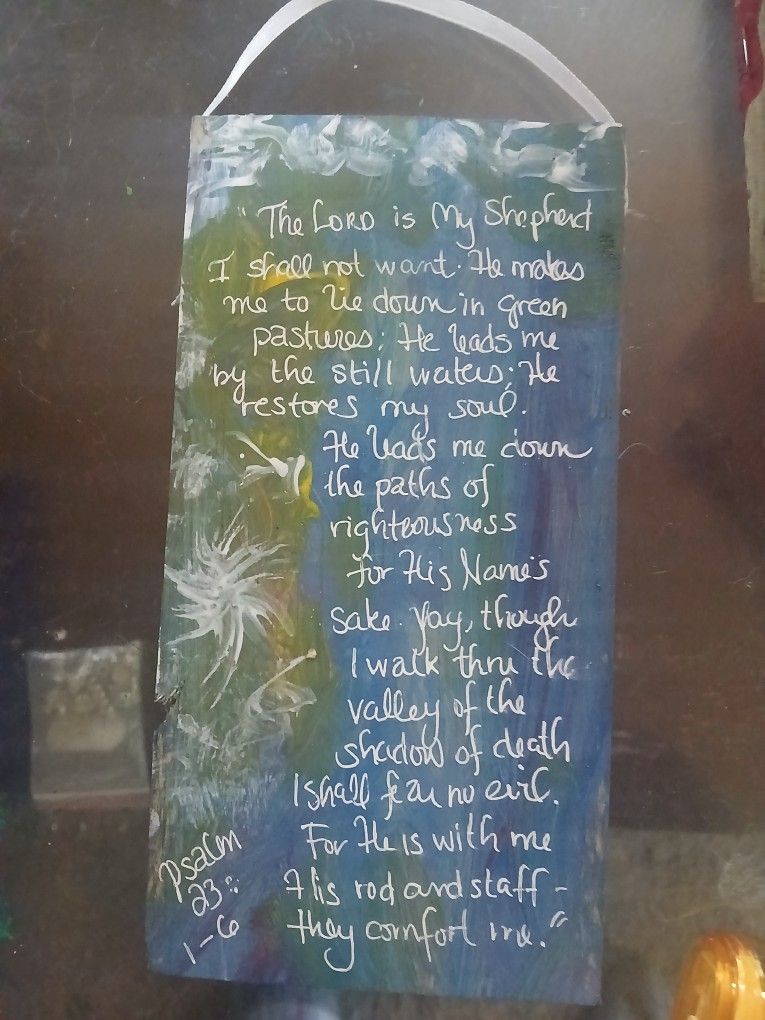 "The LORD is My Shepherd
I shall not want. He makes
me to lie down in green
pastures; He leads me
by the still waters; He
restores my soul.
He leads me down
the paths of
righteousness
for His Name's
sake. Yay, though
I walk thru the
valley of the
shadow of death
I shall fear no evil.
For He is with me
His rod and staff -
they comfort me."
Psalm
23:
1-6